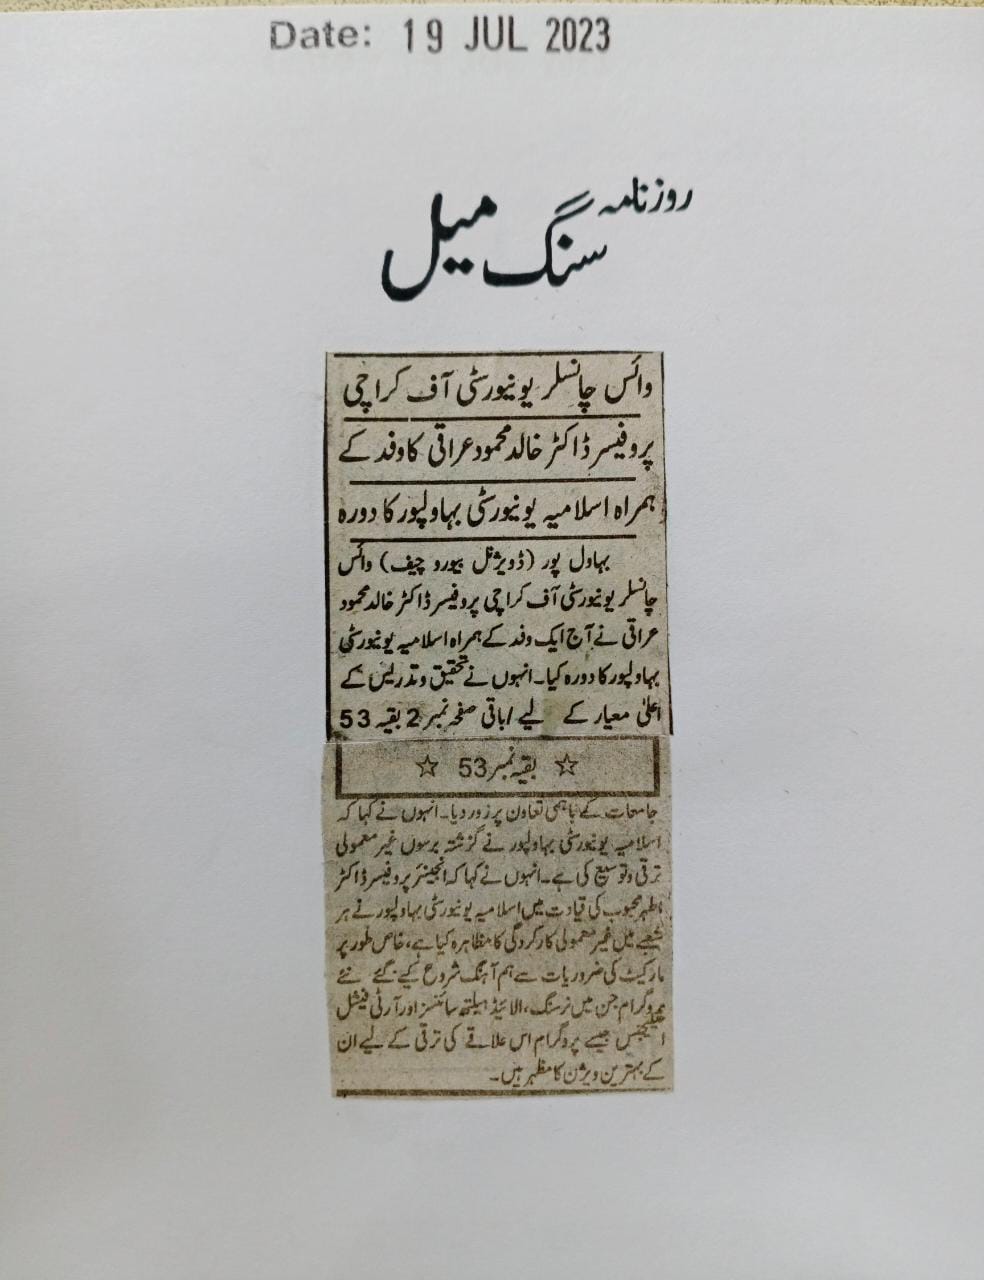 Date: 19 JUL 2023
روزنامہ
سنگ میل
وائس چانسلر یونیورسٹی آف کراچی
پروفیسر ڈاکٹر خالد محمود عراقی کا وفد کے
ہمراہ اسلامیہ یونیورسٹی بہاولپور کا دورہ
بہاول پور (ڈویژنل بیورو چیف) وائس
چانسلر یونیورسٹی آف کراچی پروفیسر ڈاکٹر خالد محمود
عراقی نے آج ایک وفد کے ہمراہ اسلامیہ یونیورسٹی
بہاولپور کا دورہ کیا۔ انہوں نے تحقیق و تدریس کے
اعلیٰ معیار کے لیے /باقی صفحہ نمبر 2 بقیہ 53
☆ بقیہ نمبر 53 ☆
جامعات کے باہمی تعاون پر زور دیا۔ انہوں نے کہا کہ
اسلامیہ یونیورسٹی بہاولپور نے گزشتہ برسوں غیر معمولی
ترقی و توسیع کی ہے۔ انہوں نے کہا کہ انجینئر پروفیسر ڈاکٹر
اطہر محبوب کی قیادت میں اسلامیہ یونیورسٹی بہاولپور نے ہر
شعبے میں غیر معمولی کارکردگی کا مظاہرہ کیا ہے، خاص طور پر
مارکیٹ کی ضروریات سے ہم آہنگ شروع کیے گئے نئے
پروگرام جن میں نرسنگ، الائیڈ ہیلتھ سائنسز اور آرٹی فیشل
انٹیلیجنس جیسے پروگرام اس علاقے کی ترقی کے لیے ان
کے بہترین ویژن کا مظہر ہیں۔